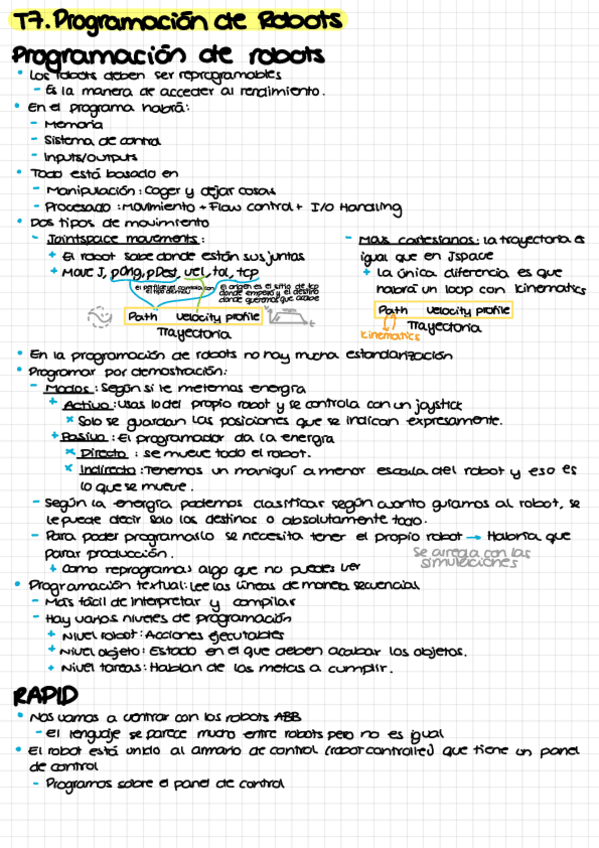 T7. Programación de Robots
Programación de robots
• Los robots deben ser reprogramables
- Es la manera de acceder al rendimiento.
• En el programa habrá:
- Memoria
- Sistema de control
- Inputs/outputs
• Todo está basado en
- Manipulación: Coger y dejar cosas
- Procesado: Movimiento + Flow control + I/O Handling
• Dos tipos de movimiento
- Jointspace movements:
+ El robot sabe donde están sus juntas
+ Move J, pOrig, pDest, vel, tol, tcp
el origen es el sitio de tcp
donde empezó y el destino
donde queremos que acabe
Path velocity profile
Trayectoria
- Mov cartesianos: la trayectoria es
igual que en Jspace
+ la única diferencia es que
habrá un loop con kinematics
Path velocity profile
Trayectoria
kinematics
• En la programación de robots no hay mucha estandarización
• Programar por demostración:
- Modos: Según si le metemos energía
+ Activo: Usas lo del propio robot y se controla con un joystick
× Solo se guardan las posiciones que se indican expresamente.
+ Pasivo: El programador da la energía
× Directo: se mueve todo el robot.
× Indirecto: Tenemos un maniquí a menor escala del robot y eso es
lo que se mueve.
- Según la energía podemos clasificar según cuanto guiamos al robot, se
le puede decir solo los destinos o absolutamente todo.
- Para poder programarlo se necesita tener el propio robot → Habría que
parar producción.
Se arregla con las
simulaciones
+ Como reprogramas algo que no puedes ver
• Programación textual: Lee las líneas de manera secuencial
- Más fácil de interpretar y compilar
- Hay varios niveles de programación
+ Nivel robot: Acciones ejecutables
+ Nivel objeto: Estado en el que deben acabar los objetos.
+ Nivel tareas: Hablan de las metas a cumplir.
RAPID
• Nos vamos a centrar con los robots ABB
- El lenguaje se parece mucho entre robots pero no es igual
• El robot está unido al armario de control (robot controller) que tiene un panel
de control
- Programos sobre el panel de control